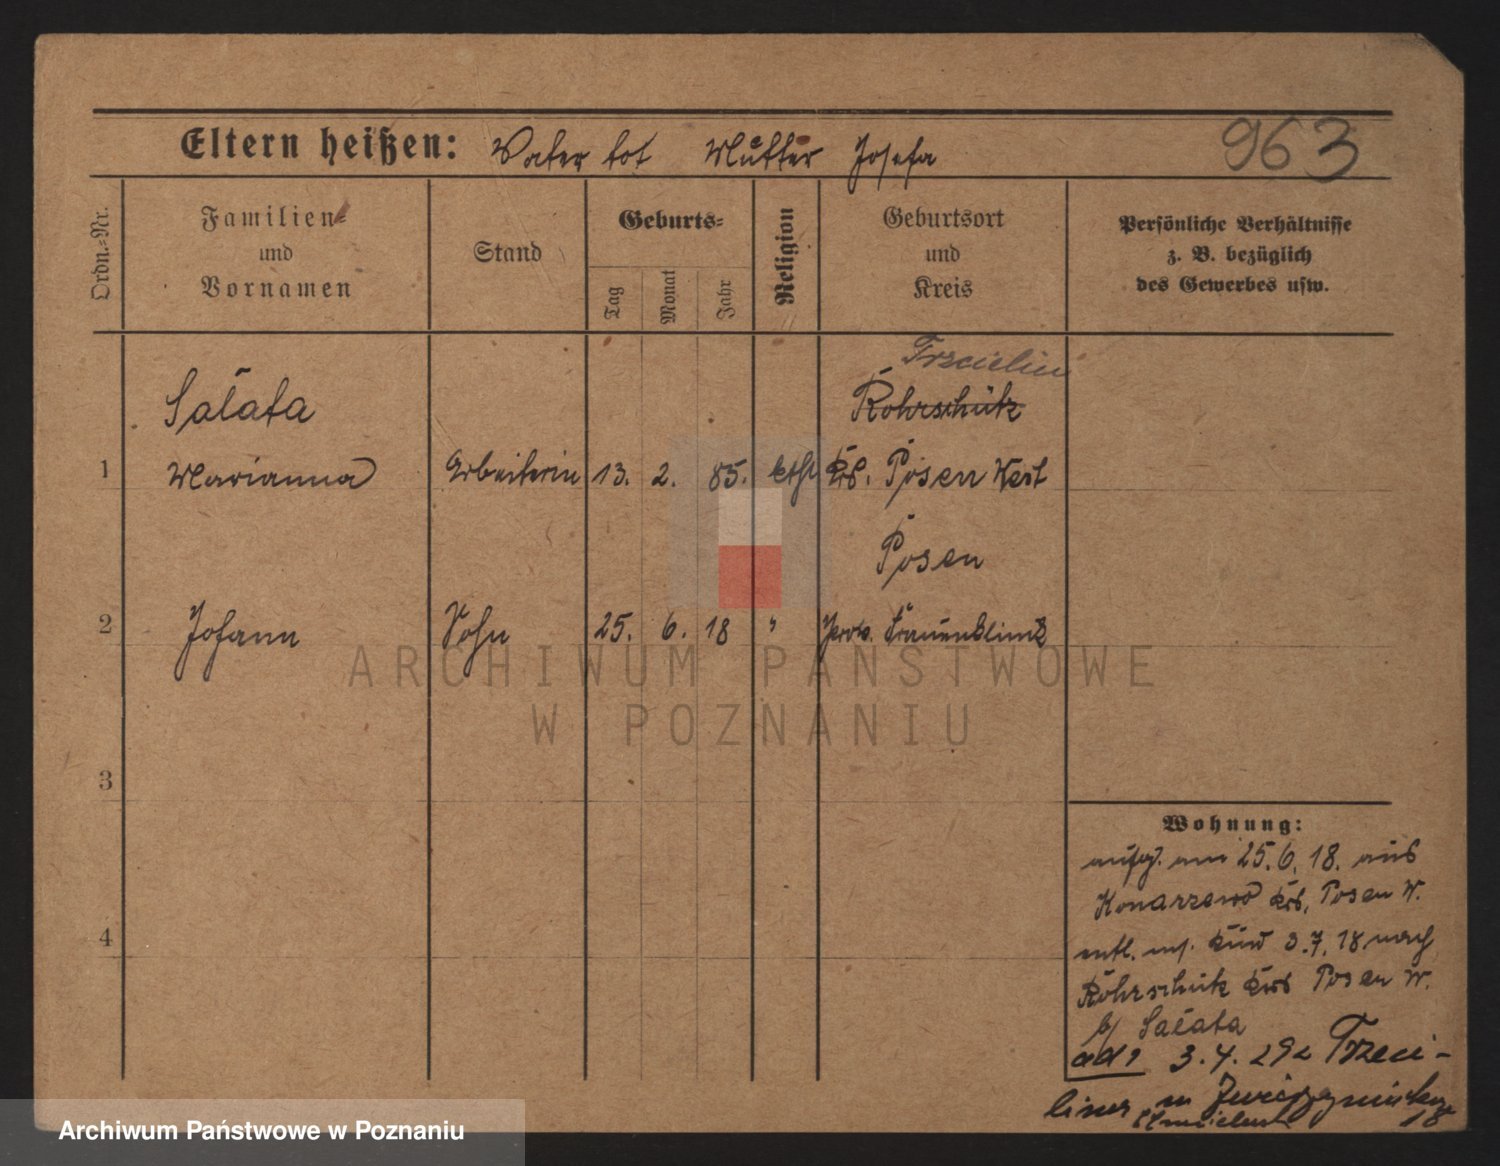 963
Eltern heißen: Vater tot Mutter Josefa
Ordn.-Nr.
Familien-
und
Vornamen
Stand
Geburts-
Tag
Monat
Jahr
Religion
Geburtsort
und
Kreis
Persönliche Verhältnisse
z. B. bezüglich
des Gewerbes usw.
Trzcielin
Sałata
Rohrschütz
1 Marianna Arbeiterin 13. 2. 85. kthl Krs. Posen West
Posen
2 Johann Sohn 25. 6. 18 " Prov. Frauenklinik
3
4
Wohnung:
aufg. am 25.6.18. aus
Konarzewo Krs. Posen W.
entl. m. Kind 3.7.18 nach
Rohrschütz Krs Posen W.
b/ Sałata
ad 1 3.4.29 z Trzcie-
18
ARCHIWUM PAŃSTWOWE
W POZNANIU
Archiwum Państwowe w Poznaniu